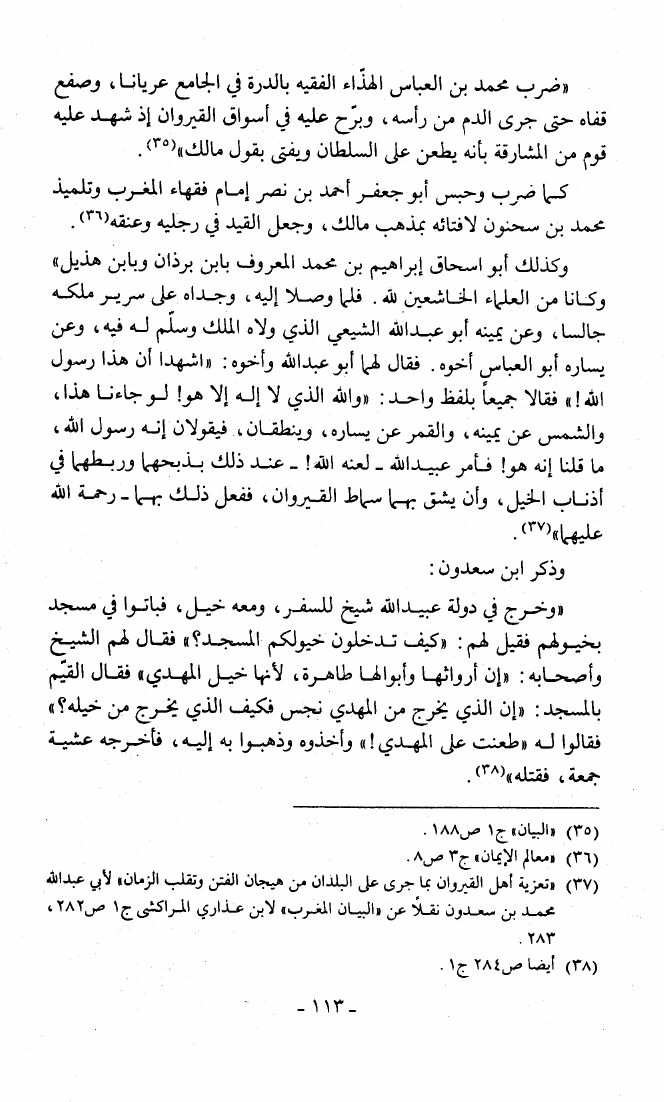 «ضرب محمد بن العباس الهذّاء الفقيه بالدرة في الجامع عريانا، وصفع
قفاه حتى جرى الدم من رأسه، وبرّح عليه في أسواق القيروان إذ شهد عليه
قوم من المشارقة بأنه يطعن على السلطان ويفتى بقول مالك»(٣٥).
كما ضرب وحبس أبو جعفر أحمد بن نصر إمام فقهاء المغرب وتلميذ
محمد بن سحنون لافتائه بمذهب مالك، وجعل القيد في رجليه وعنقه(٣٦).
وكذلك أبو اسحاق إبراهيم بن محمد المعروف بابن برذان وبابن هذيل»
وكانا من العلماء الخاشعين لله. فلما وصلا إليه، وجداه على سرير ملكه
جالسا، وعن يمينه أبو عبدالله الشيعي الذي ولاه الملك وسلّم له فيه، وعن
يساره أبو العباس أخوه. فقال لهما أبو عبدالله وأخوه: «اشهدا أن هذا رسول
الله!» فقالا جميعاً بلفظ واحد: «والله الذي لا إله إلا هو! لو جاءنا هذا،
والشمس عن يمينه، والقمر عن يساره، وينطقان، فيقولان إنه رسول الله،
ما قلنا إنه هو! فأمر عبيدالله ـ لعنه الله! ـ عند ذلك بذبحهما وربطهما في
أذناب الخيل، وأن يشق بهما سماط القيروان، ففعل ذلك بهما ـ رحمة الله
عليهما»(٣٧).
وذكر ابن سعدون:
«وخرج في دولة عبيدالله شيخ للسفر، ومعه خيل، فباتوا في مسجد
بخيولهم فقيل لهم: «كيف تدخلون خيولكم المسجد؟» فقال لهم الشيخ
وأصحابه: «إن أرواثها وأبوالها طاهرة، لأنها خيل المهدي» فقال القيّم
بالمسجد: «إن الذي يخرج من المهدي نجس فكيف الذي يخرج من خيله؟»
فقالوا له «طعنت على المهدي!» وأخذوه وذهبوا به إليه، فأخرجه عشية
جمعة، فقتله»(٣٨).
(٣٥) «البيان» ج١ ص١٨٨.
(٣٦) «معالم الإيمان» ج٣ ص٨.
(٣٧) «تعزية أهل القيروان بما جرى على البلدان من هيجان الفتن وتقلب الزمان» لأبي عبدالله
محمد بن سعدون نقلاً عن «البيان المغرب» لابن عذاري المراكشى ج١ ص٢٨٢،
٢٨٣.
(٣٨) أيضا ص٢٨٤ ج١.
ـ ١١٣ ـ